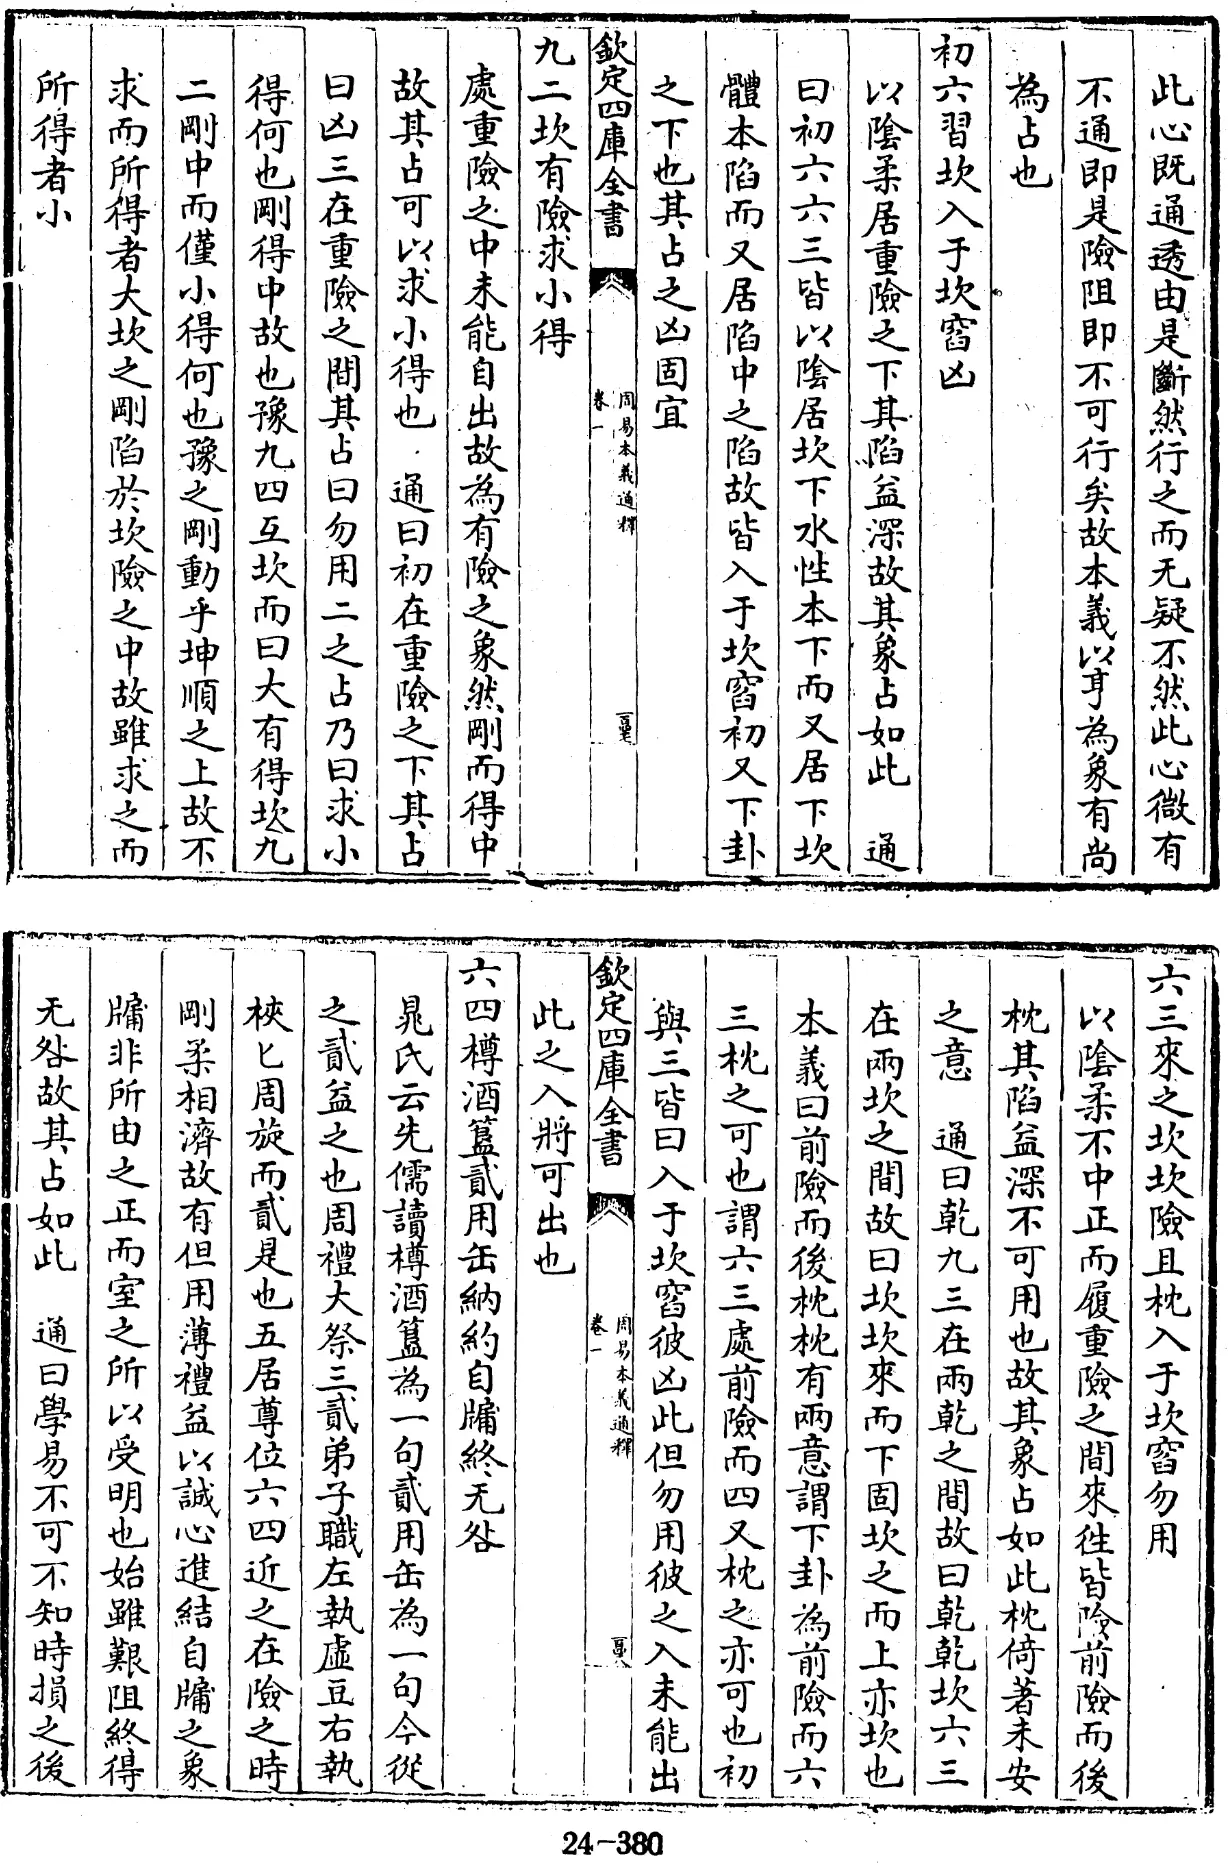 此心既通透由是斷然行之而无疑不然此心微有
不通即是險阻即不可行矣故本義以亨為象有尚
為占也
初六習坎入于坎窞凶
以陰柔居重險之下其陷益深故其象占如此　通
曰初六六三皆以陰居坎下水性本下而又居下坎
體本陷而又居陷中之陷故皆入于坎窞初又下卦
之下也其占之凶固宜
欽定四庫全書
周易本義通釋
卷一
九二坎有險求小得
處重險之中未能自出故為有險之象然剛而得中
故其占可以求小得也　通曰初在重險之下其占
曰凶三在重險之間其占曰勿用二之占乃曰求小
得何也剛得中故也豫九四互坎而曰大有得坎九
二剛中而僅小得何也豫之剛動乎坤順之上故不
求而所得者大坎之剛陷於坎險之中故雖求之而
所得者小
六三來之坎坎險且枕入于坎窞勿用
以陰柔不中正而履重險之間來徃皆險前險而後
枕其陷益深不可用也故其象占如此枕倚著未安
之意　通曰乾九三在兩乾之間故曰乾乾坎六三
在兩坎之間故曰坎坎來而下固坎之而上亦坎也
本義曰前險而後枕枕有兩意謂下卦為前險而六
三枕之可也謂六三處前險而四又枕之亦可也初
與三皆曰入于坎窞彼凶此但勿用彼之入未能出
欽定四庫全書
周易本義通釋
卷一
此之入將可出也
六四樽酒簋貳用缶納約自牖終无咎
晁氏云先儒讀樽酒簋為一句貳用缶為一句今從
之貳益之也周禮大祭三貳弟子職左執虛豆右執
梜匕周旋而貳是也五居尊位六四近之在險之時
剛柔相濟故有但用薄禮益以誠心進結自牖之象
牖非所由之正而室之所以受明也始雖艱阻終得
无咎故其占如此　通曰學易不可不知時損之後
24-380